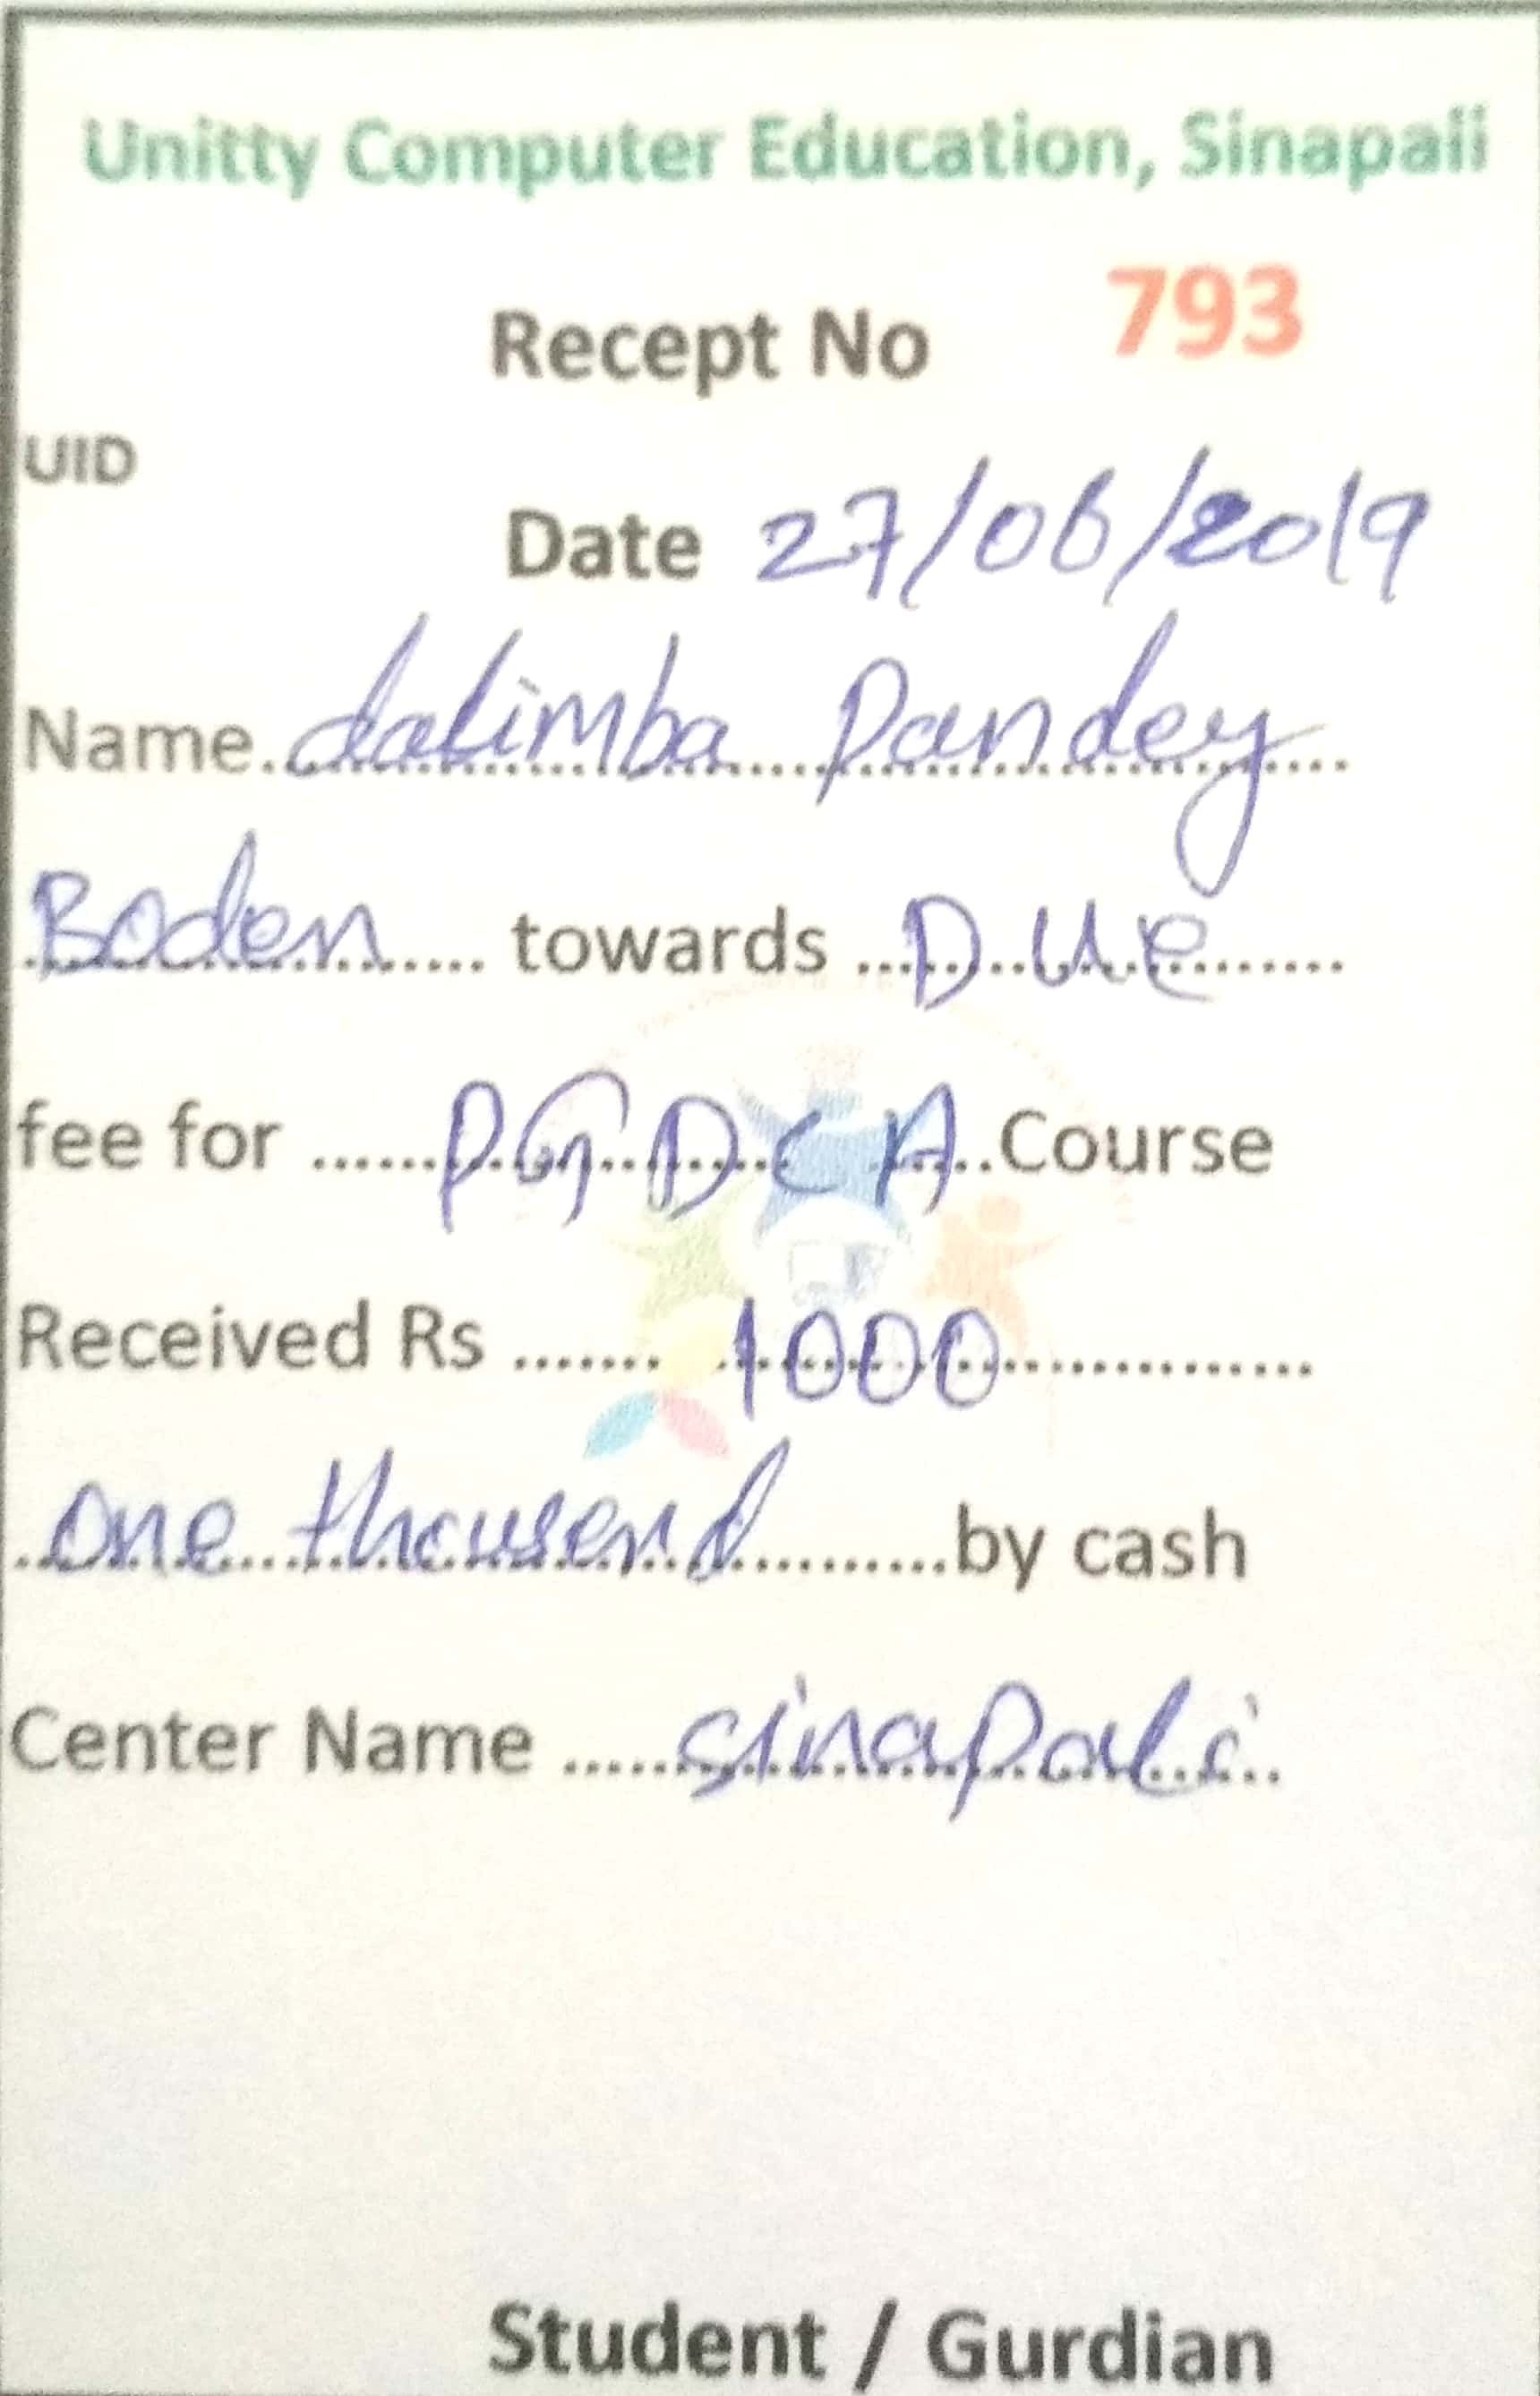 Unitty Computer Education, Sinapali
Recept No 793
UID
Date 27/06/2019
Name. dalimba Pandey
Boden towards Due
fee for PGDCA Course
Received Rs 1000
one thousend by cash
Center Name sinapali
Student / Gurdian